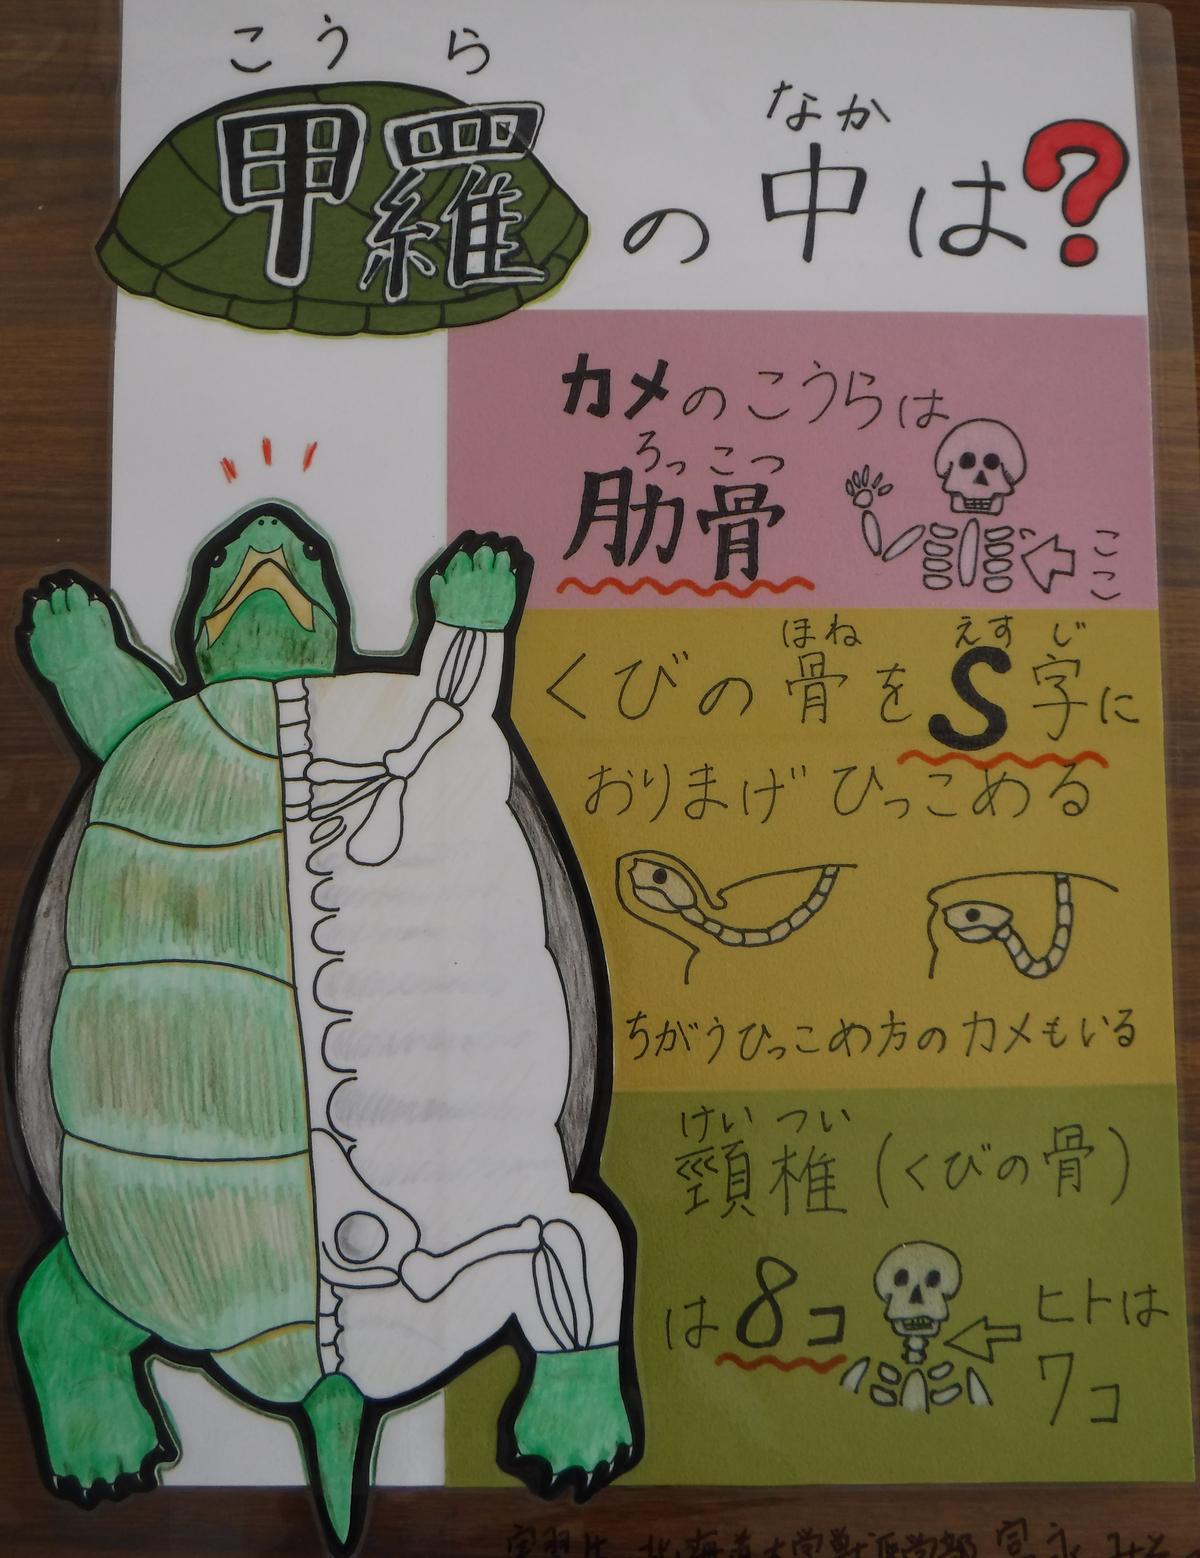 こうら なか
甲羅の中は?
カメのこうらは
ろっこつ
肋骨
ここ
ほね えす じ
くびの骨をS字に
おりまげひっこめる
ちがうひっこめ方のカメもいる
けい つい
頸椎(くびの骨)
は8コ
ヒトは
7コ
北海道大学獣医学部